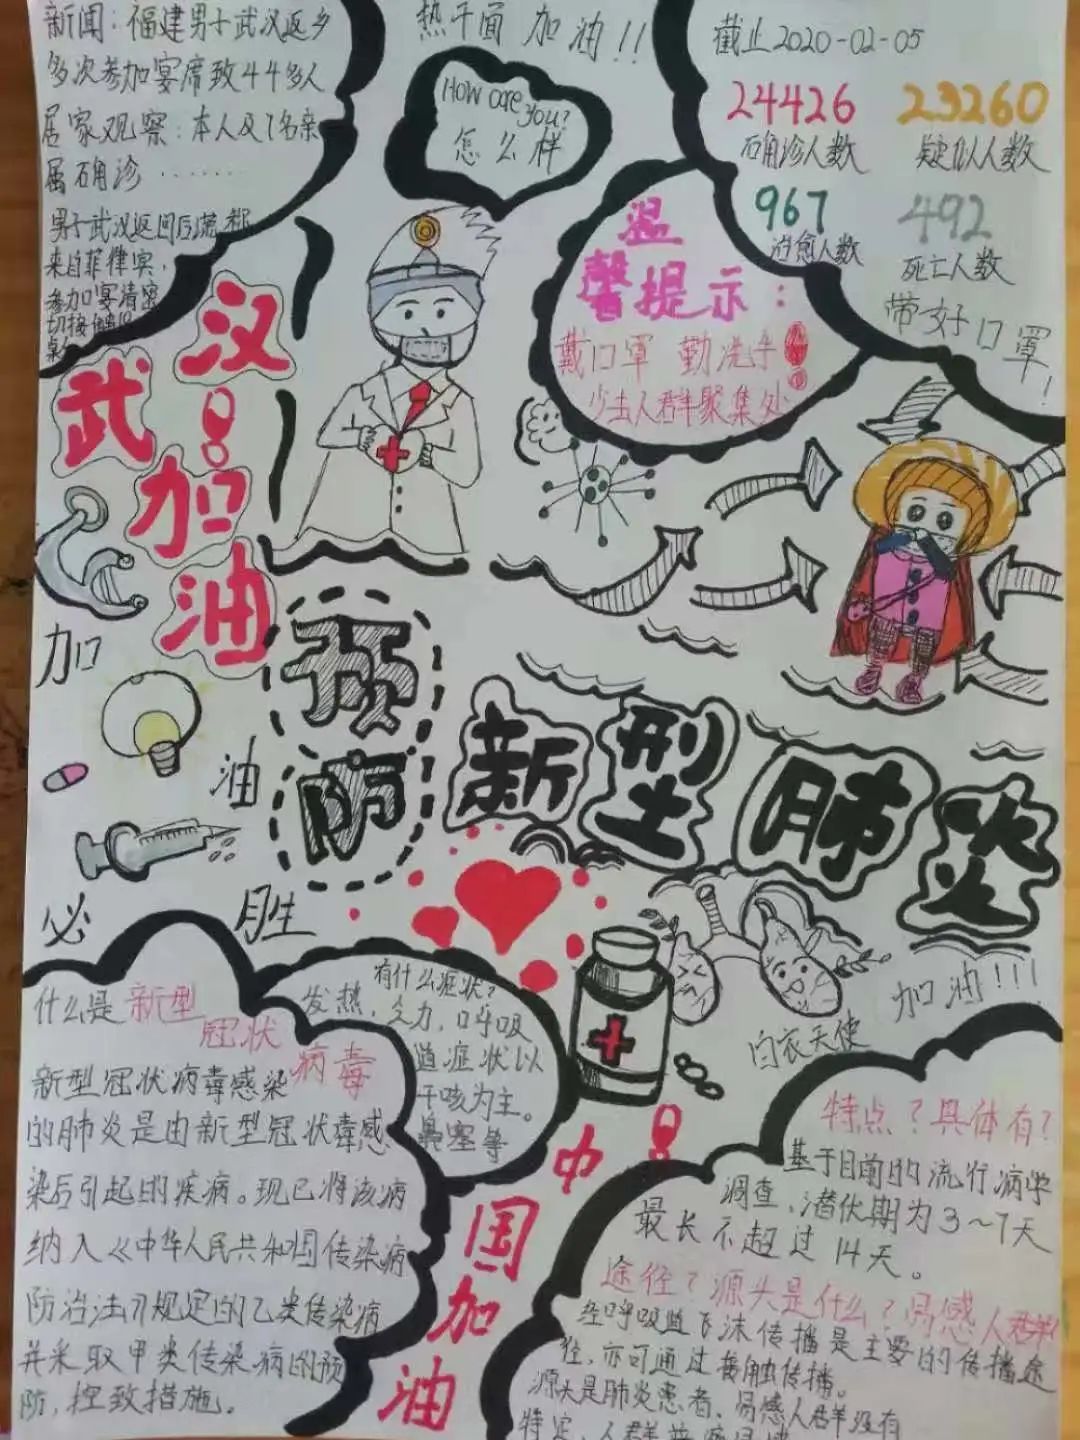 新闻：福建男子武汉返乡
多次参加宴席致44多人
居家观察：本人及7名亲
属确诊………
男子武汉返回后谎称
来自菲律宾，
参加口宴请密
切接触
热干面 加油!!
How are
you?
怎么样
截止2020-02-05
24426 23260
确诊人数 疑似人数
967 492
治愈人数 死亡人数
带好口罩!
温
馨提示：
戴口罩 勤洗手
少去人群聚集处
武汉
加油
加
油
必
胜
预
防
新型肺炎
加油!!!
白衣天使
什么是新型
冠状
病毒
新型冠状病毒感染
的肺炎是由新型冠状毒感
染后引起的疾病。现已将该病
纳入《中华人民共和国传染病
防治法》规定的乙类传染病
并采取甲类传染病的预
防，控致措施。
有什么症状?
发热，乏力，呼吸
道症状以
干咳为主。
鼻塞等
中
国
加
油
特点？具体有？
基于目前的流行病学
调查，潜伏期为3~7天
最长不超过14天。
途径？源头是什么？易感人群
经呼吸道飞沫传播是主要的传播途
径，亦可通过接触传播。
源头是肺炎患者、易感人群没有
特定，人群普遍